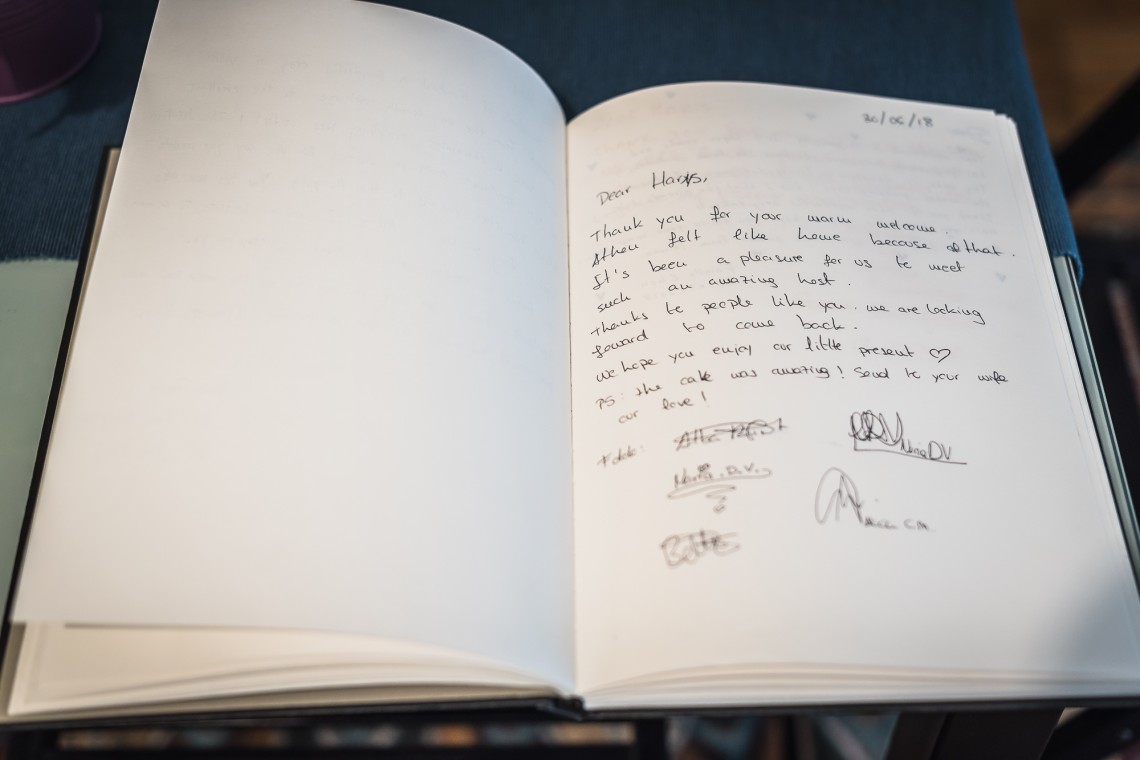 30/06/18
Dear
Thank you for your warm welcome.
Athen felt like home because of that.
It's been a pleasure for us to meet
such an amazing host.
Thanks to people like you. we are looking
foward to come back.
we hope you enjoy our little present ♡
PS: the cake was amazing! Send to your wife
our love!
Nuria DV
Nuria. D.V.
C.M.